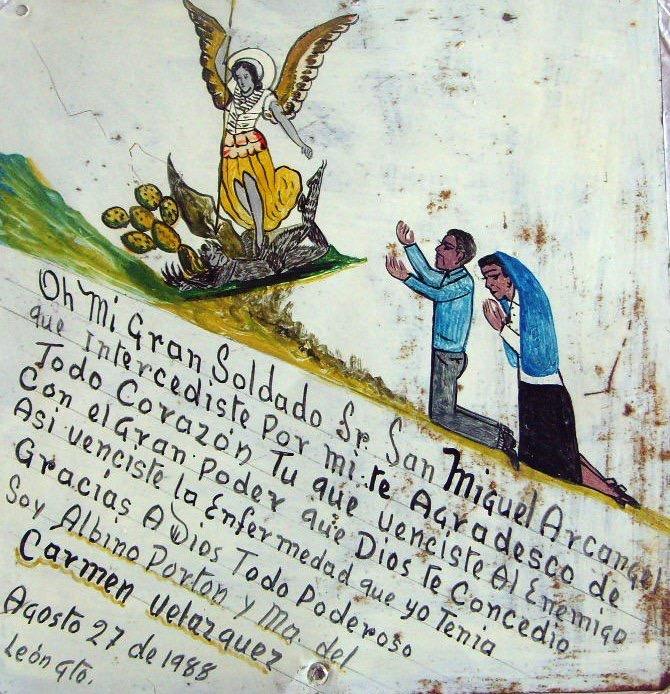 Oh Mi Gran Soldado Sr. San Miguel Arcangel
que intercediste Por mi. te Agradesco de
Todo Corazón Tu que venciste Al Enemigo
Con el Gran Poder que Dios te Concedio
Asi venciste la Enfermedad que yo Tenia
Gracias A Dios Todo Poderoso
Soy Albino Porton y Ma. del
Carmen Velazquez
Agosto 27 de 1988
León Gto.